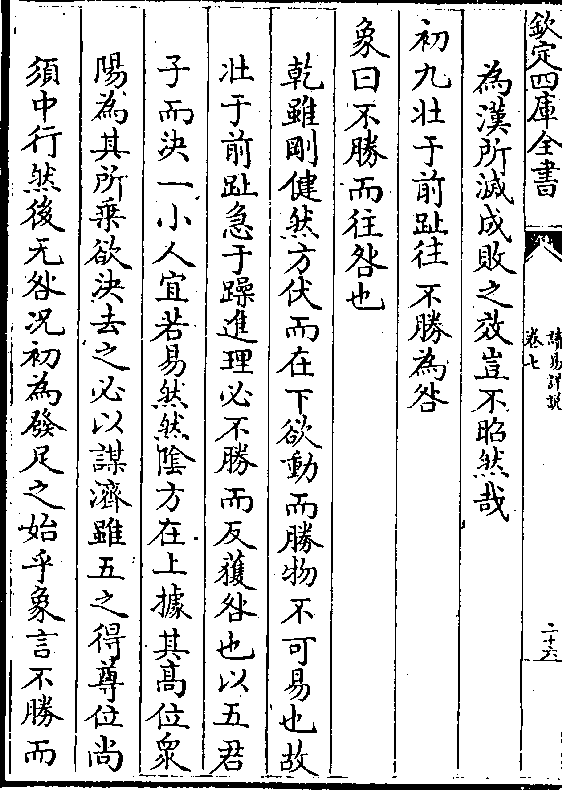 欽定四庫全書
讀易詳說
卷七
二十六
為漢所滅成敗之效豈不昭然哉
初九壯于前趾往不勝為咎
象曰不勝而往咎也
乾雖剛健然方伏而在下欲動而勝物不可易也故
壯于前趾急于躁進理必不勝而反獲咎也以五君
子而決一小人宜若易然然陰方在上據其髙位衆
陽為其所乗欲決去之必以謀濟雖五之得尊位尚
須中行然後无咎况初為發足之始乎象言不勝而